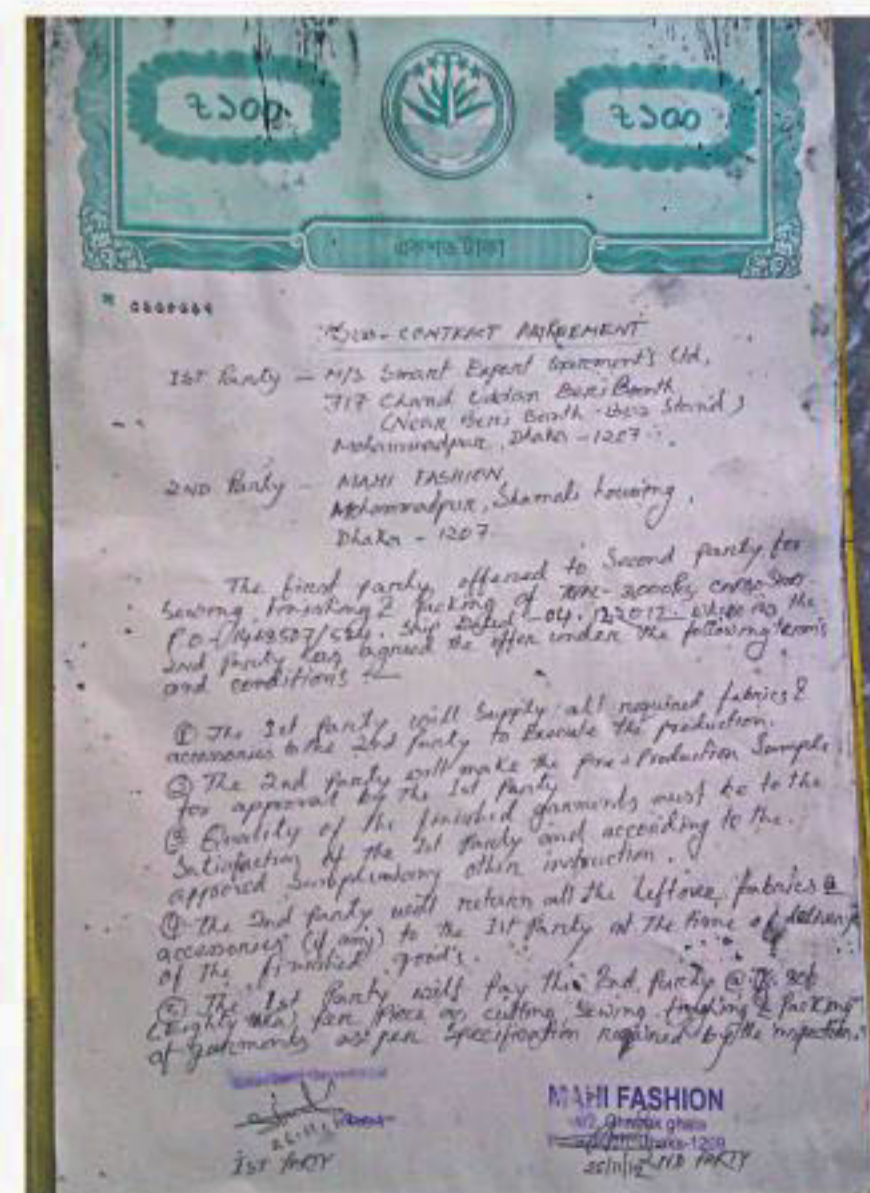 ৳১০০ ৳১০০
একশত টাকা
SUB-CONTRACT AGREEMENT
1ST Party – M/S Smart Export Garment's Ltd,
717 Chand Uddan Beri Banth
(Near Beri Banth Bus Stand)
Mohammadpur, Dhaka – 1207.
2ND Party – MAHI FASHION,
Mohammadpur, Shamali housing,
Dhaka – 1207
The first party offered to Second party for
Sewing Finishing & Packing of
P.O. Ship Dated – 04. the
2nd Party has agreed the offer under the following term's
and conditions –
① The 1st Party will Supply all required fabrics &
accessories to the 2nd Party to Execute the production.
② The 2nd Party will make the Pre-Production Sample
for approval by The 1st Party
③ Quality of the finished garments must be to the
Satisfaction of the 1st Party and according to the
other instruction.
④ The 2nd Party will return all the leftover fabrics &
accessories (if any) to the 1st Party at The time of delivery
of The finished good's.
The 1st Party will Pay the 2nd Party @
(Eighty taka) Per Piece as cutting, Sewing finishing & Packing
of garments as per Specification required by the
MAHI FASHION
1ST PARTY
25/11/12 2ND PARTY